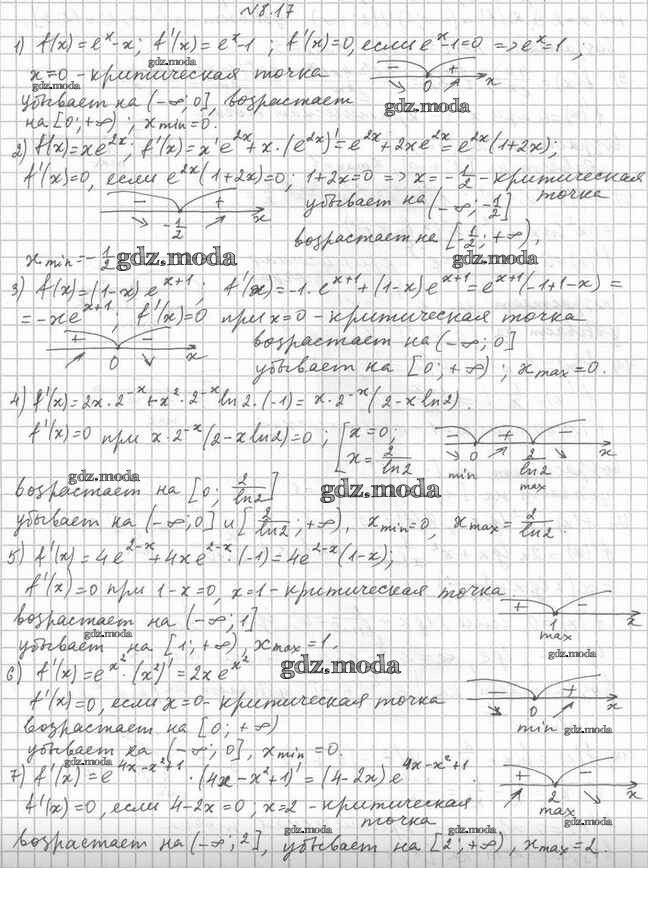 №8.17
1) f(x)=eˣ-x; f'(x)=eˣ-1; f'(x)=0, если eˣ-1=0 => eˣ=1;
gdz.moda
x=0 - критическая точка
- 0 + x
убывает на (-∞;0], возрастает
gdz.moda
на [0;+∞); x min=0.
2) f(x)=xe²ˣ; f'(x)=x'e²ˣ+x·(e²ˣ)'=e²ˣ+2xe²ˣ=e²ˣ(1+2x);
gdz.moda
f'(x)=0, если e²ˣ(1+2x)=0; 1+2x=0 => x=-1/2 - критическая
точка
- -1/2 + x
убывает на (-∞;-1/2]
возрастает на [-1/2;+∞),
gdz.moda
x min=-1/2
gdz.moda
3) f(x)=(1-x)eˣ⁺¹; f'(x)=-1·eˣ⁺¹+(1-x)eˣ⁺¹=eˣ⁺¹(-1+1-x)=
=-xeˣ⁺¹; f'(x)=0 при x=0 - критическая точка
+ 0 - x
возрастает на (-∞;0]
убывает на [0;+∞); x max=0.
4) f'(x)=2x·2⁻ˣ+x²·2⁻ˣln2·(-1)=x·2⁻ˣ(2-xln2).
f'(x)=0 при x·2⁻ˣ(2-xln2)=0; [x=0; x=2/ln2
- 0 + 2/ln2 - x
min max
gdz.moda
возрастает на [0; 2/ln2]
gdz.moda
убывает на (-∞;0] и [2/ln2;+∞), x min=0, x max=2/ln2.
5) f'(x)=4e²⁻ˣ+4xe²⁻ˣ·(-1)=4e²⁻ˣ(1-x);
f'(x)=0 при 1-x=0, x=1 - критическая точка.
+ 1 - x
max
возрастает на (-∞;1]
gdz.moda
убывает на [1;+∞), x max=1.
gdz.moda
gdz.moda
6) f'(x)=e^(x²)·(x²)'=2xe^(x²)
f'(x)=0, если x=0 - критическая точка
- 0 + x
min
gdz.moda
возрастает на [0;+∞)
убывает на (-∞;0], x min=0.
gdz.moda
7) f'(x)=e^(4x-x²+1)·(4x-x²+1)'=(4-2x)e^(4x-x²+1).
f'(x)=0, если 4-2x=0; x=2 - критическая
точка
+ 2 - x
max
gdz.moda
gdz.moda
gdz.moda
возрастает на (-∞;2], убывает на [2;+∞), x max=2.